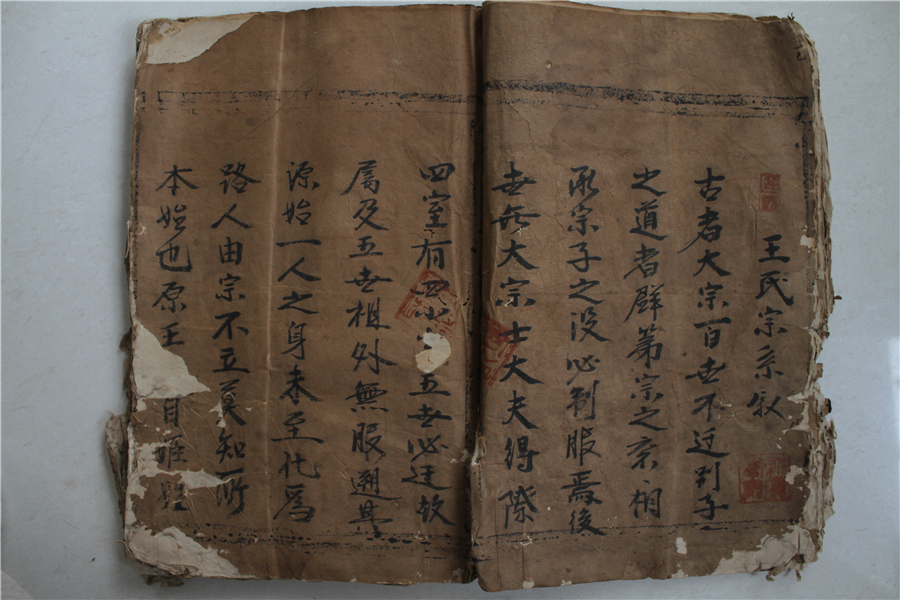 王氏宗系叙
古者大宗百世不迁别子
之道者群弟宗之宗相
承宗子之没必制服焉後
世無大宗士大夫得際
四室有四小五世必迁故
属及五世祖外無服遡其
源始一人之身末至化為
路人由宗不立莫知所
本始也原王自姬